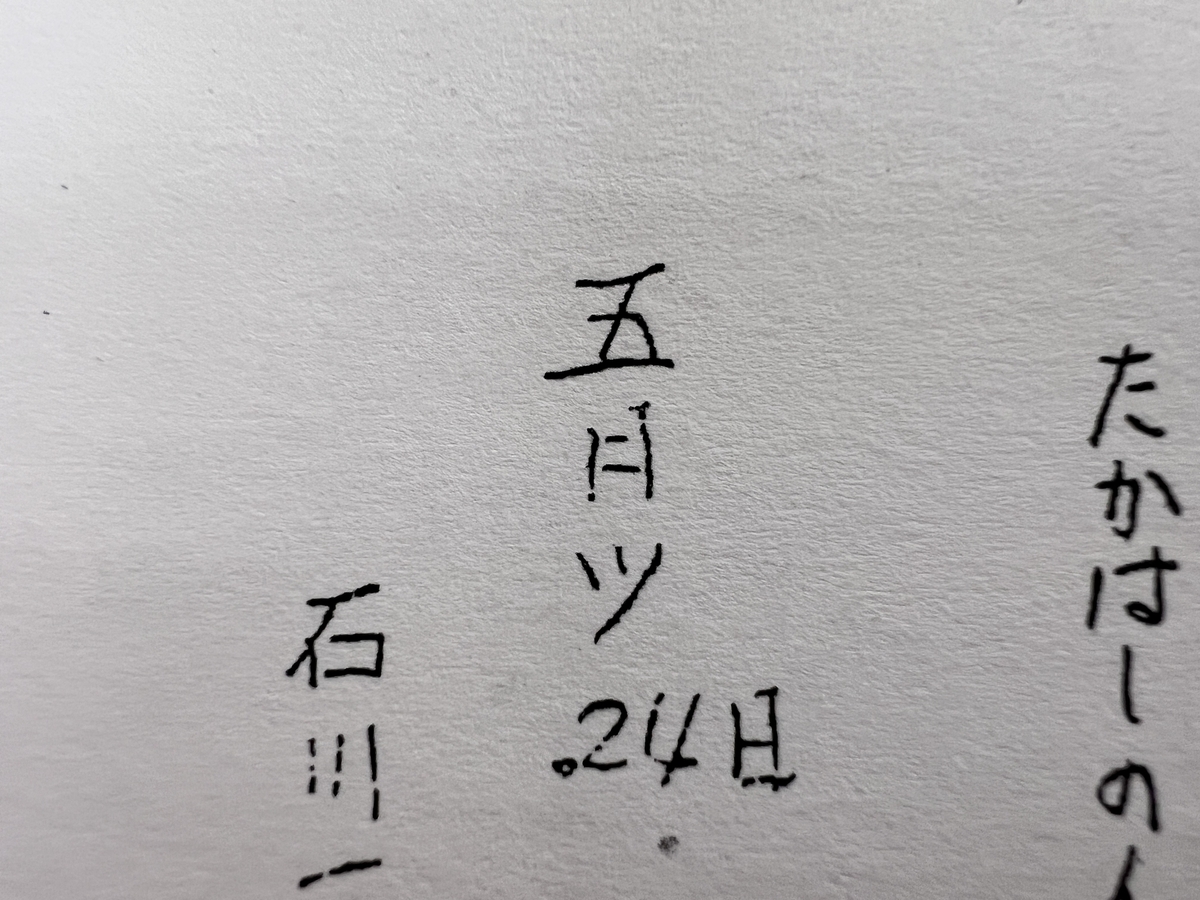 たかはしの
五月ツ
.24日
石川一